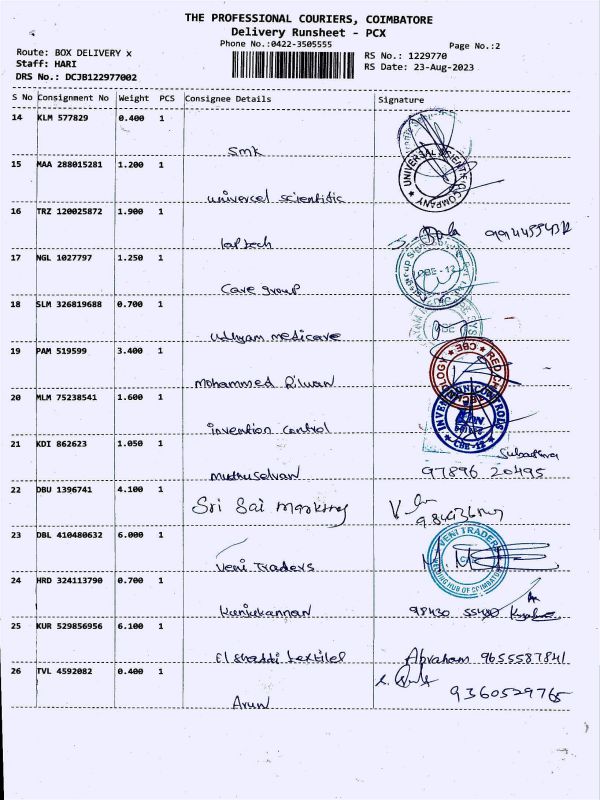 THE PROFESSIONAL COURIERS, COIMBATORE
Delivery Runsheet - PCX
Phone No.:0422-3505555
Page No.:2
Route: BOX DELIVERY x
RS No.: 1229770
Staff: HARI
RS Date: 23-Aug-2023
DRS No.: DCJB122977002
S No Consignment No Weight PCS Consignee Details Signature
14 KLM 577829 0.400 1
SMK
15 MAA 288015281 1.200 1
UNIVERSAL SCIENTIFIC COMPANY
univercel scientific
16 TRZ 120025872 1.900 1
laptech
17 NGL 1027797 1.250 1
CBE - 12
Care group
18 SLM 326819688 0.700 1
CBE
udhyam medicare
19 PAM 519599 3.400 1
CBE
mohammed Rilwan
20 MLM 75238541 1.600 1
CBE-12
invention control
21 KDI 862623 1.050 1
muthuselvan 97896 20495
22 DBU 1396741 4.100 1
Sri Sai marking
23 DBL 410480632 6.000 1
VENI TRADERS
WELDING HUB OF COIMBATORE
Veni Traders
24 HRD 324113790 0.700 1
Kunjukannan 98430
25 KUR 529856956 6.100 1
El shaddi textiles Abraham 9655587841
26 TVL 4592082 0.400 1
Arun 9360529765